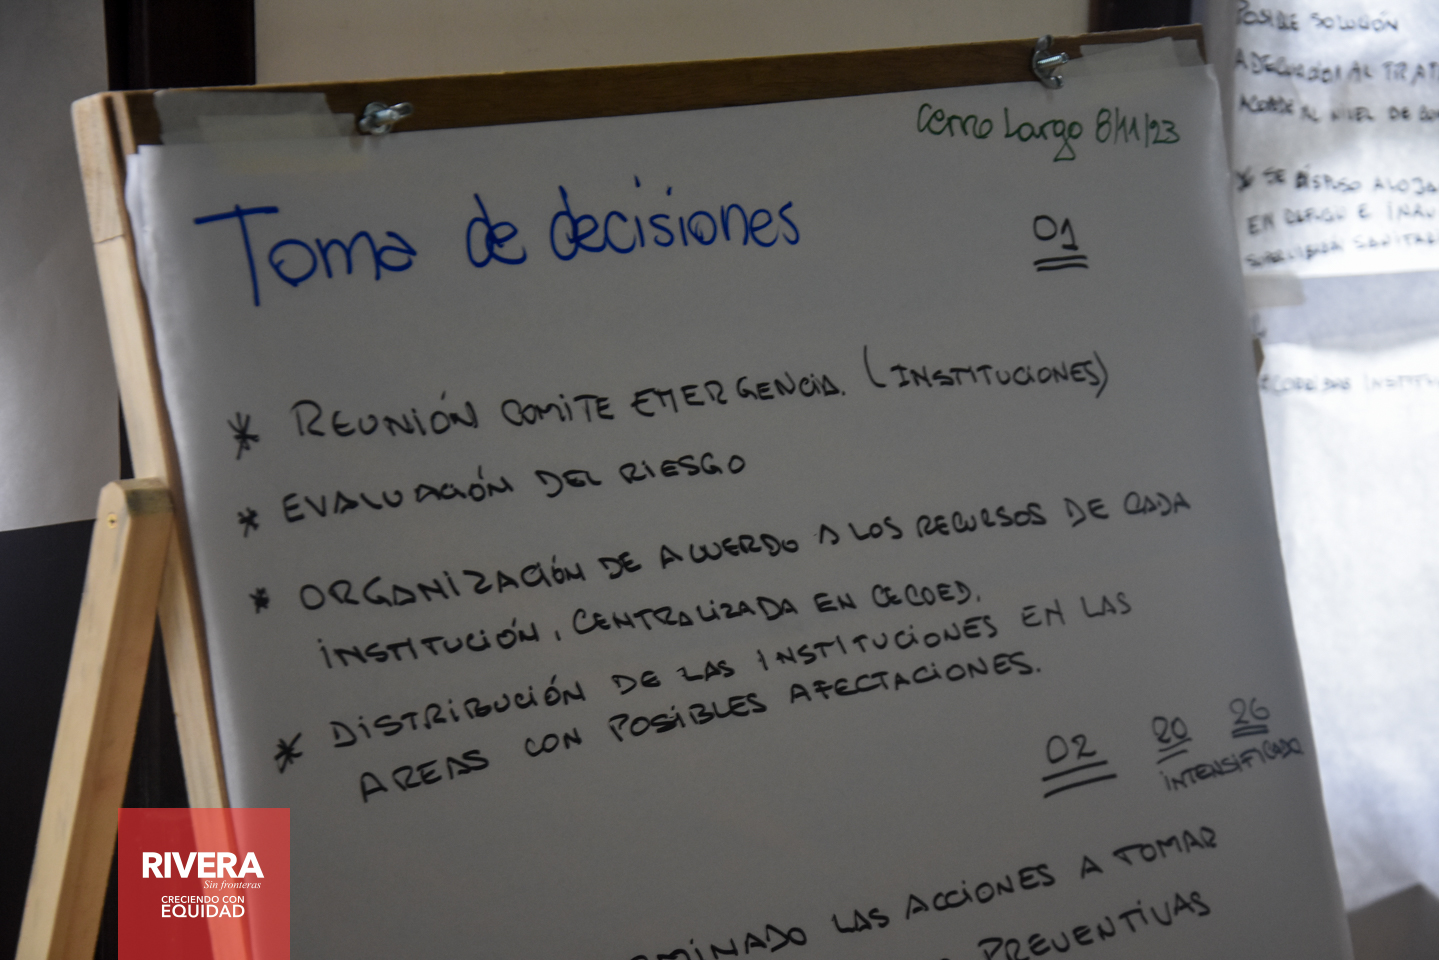 Cerro Largo 8/11/23
Toma de decisiones
01
* REUNIÓN COMITE EMERGENCIA. (INSTITUCIONES)
* EVALUACIÓN DEL RIESGO
* ORGANIZACIÓN DE ACUERDO A LOS RECURSOS DE CADA
INSTITUCIÓN, CENTRALIZADA EN CECOED.
* DISTRIBUCIÓN DE LAS INSTITUCIONES EN LAS
AREAS CON POSIBLES AFECTACIONES.
02 20 26
INTENSIFICADO
LAS ACCIONES A TOMAR
PREVENTIVAS
POSIBLE SOLUCIÓN
AL
AL NIVEL DE
* SE DISPUSO
EN E
RIVERA
Sin fronteras
CRECIENDO CON
EQUIDAD